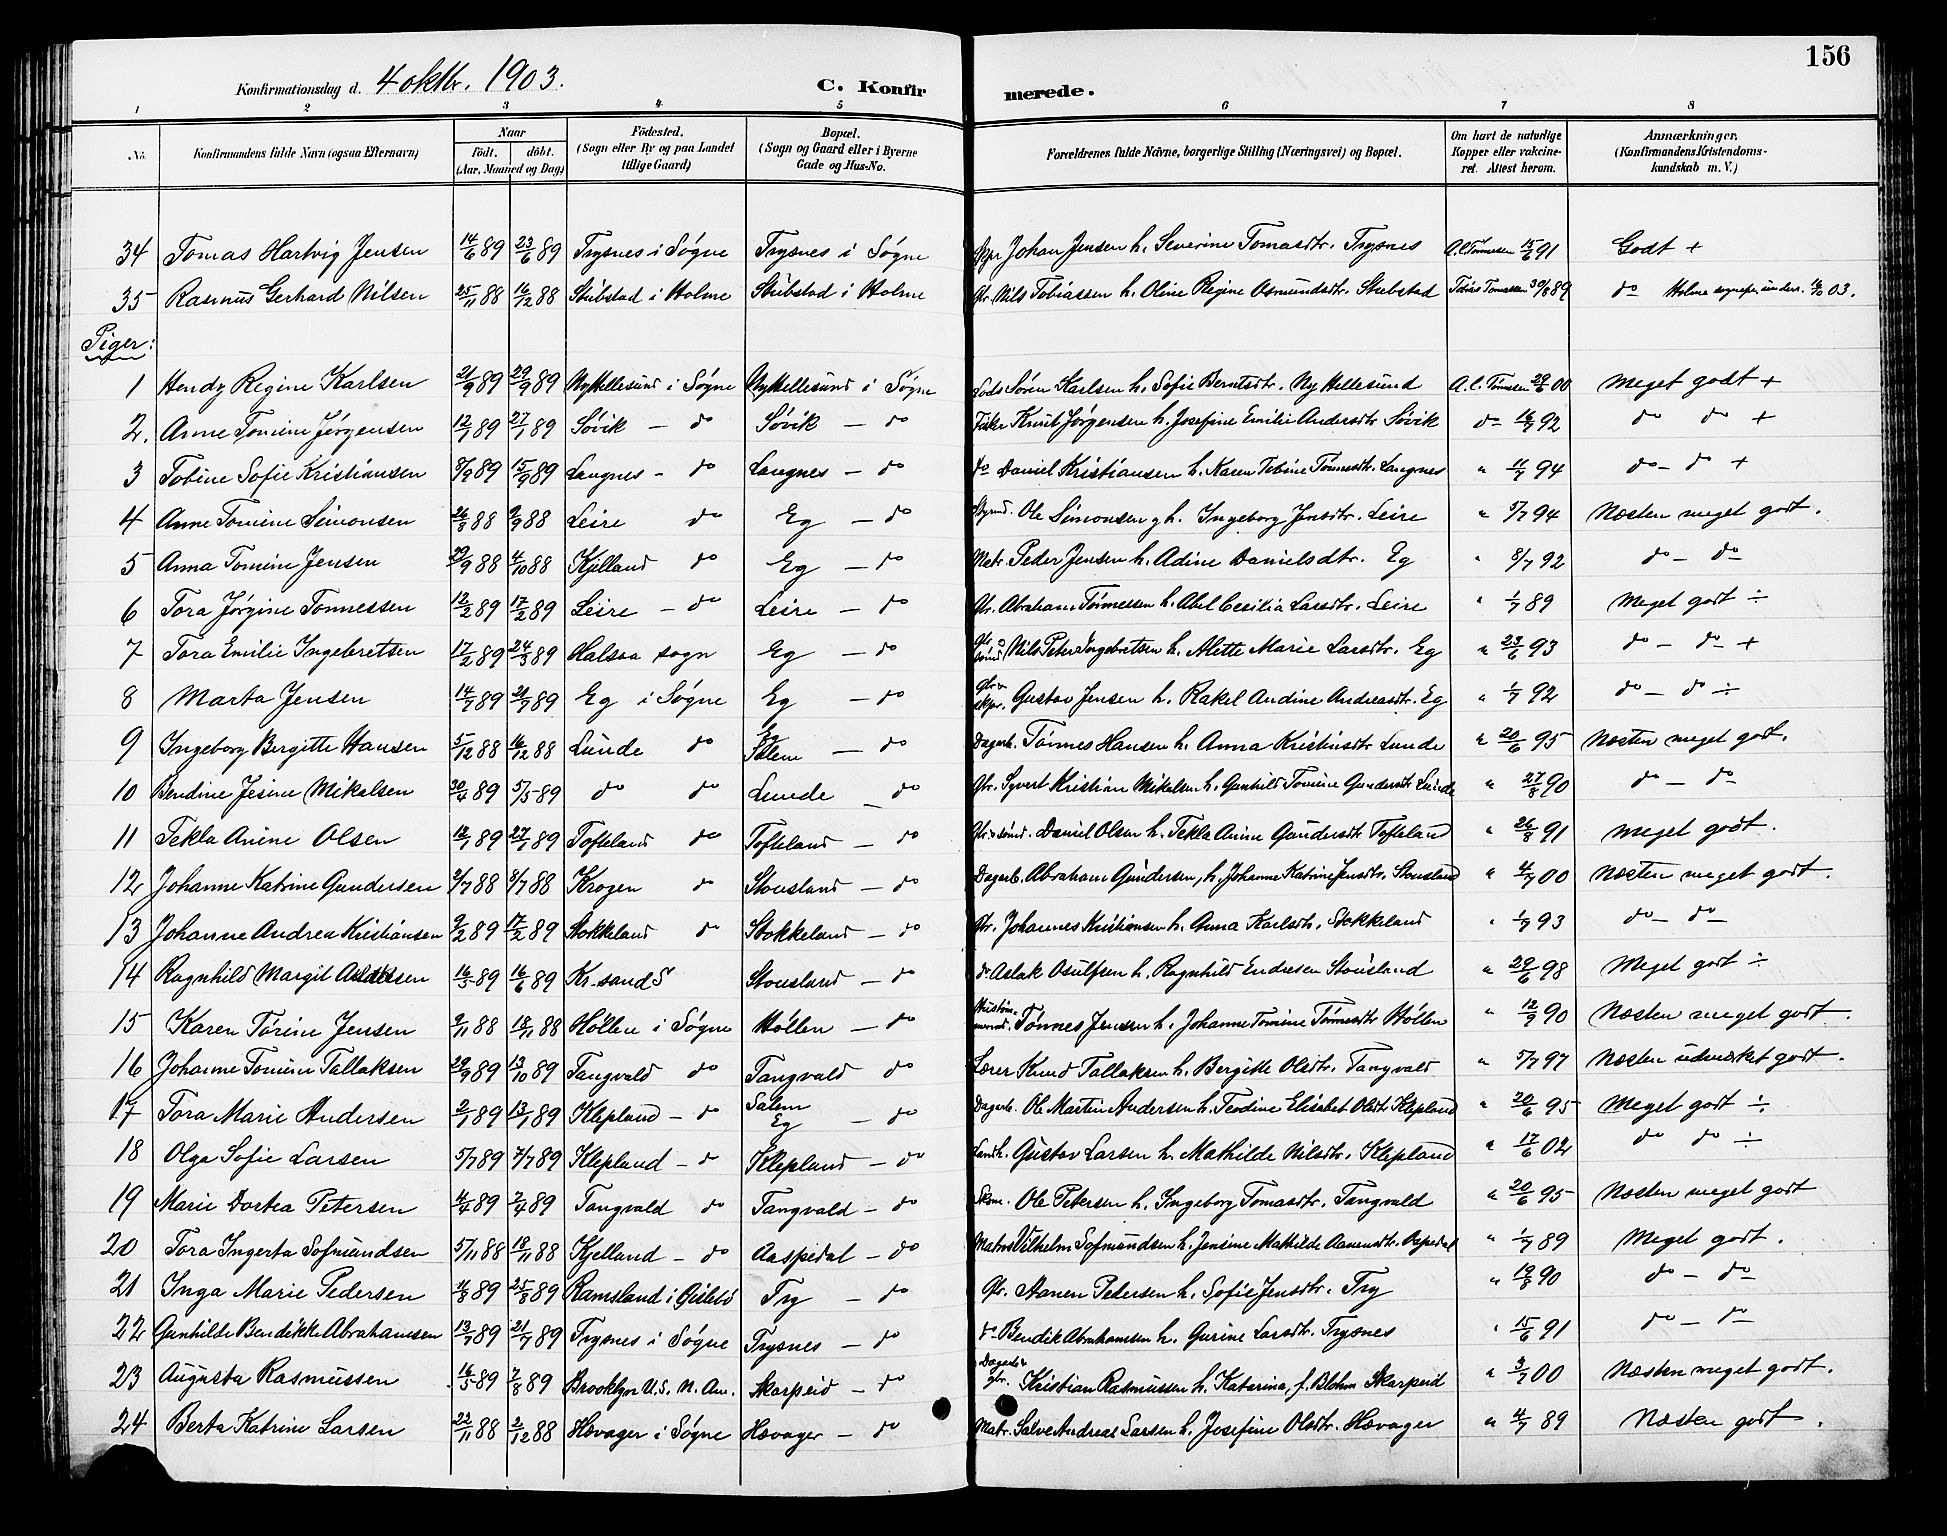 156
Konfirmationsdag d. 4 oktbr. 1903. C. Konfirmerede.
1 2 3 4 5 6 7 8
No. Konfirmandens fulde Navn (ogsaa Efternavn) Naar Födt. döbt. (Aar, Maaned og Dag) Födested. (Sogn eller By og paa Landet tillige Gaard) Bopæl. (Sogn og Gaard eller i Byerne Gade og Hus-No. Forældrenes fulde Navne, borgerlige Stilling (Næringsvei) og Bopæl. Om havt de naturlige Kopper eller vakcineret. Attest herom. Anmærkninger. (Konfirmandens Kristendomskundskab m. V.)
34 Tomas Hartvig Jensen 14/6 89 23/6 89 Trysnes i Søgne Trysnes i Søgne Johan Jensen h. Severine Tomasdtr. Trysnes A. C. Tønnesen 15/6 91 Godt +
35 Rasmus Gerhard Nilsen 25/11 88 16/12 88 Stubstad i Holme Stubstad i Holme Gbr. Nils Tobiassen h. Oline Regine Osmundsdtr. Stubstad Tobias Tomassen 30/8 89 do Holme
Piger:
1 Hendy Regine Karlsen 21/9 89 29/9 89 Ny Hellesund i Søgne Ny Hellesund i Søgne Lods Søren Karlsen h. Sofie Berntsdtr. Ny Hellesund A. C. Tønnesen 29/6 00 Meget godt +
2. Anne Tomine Jørgensen 12/1 89 27/1 89 Søvik - do Søvik - do Fisker Knut Jørgensen h. Josefine Emilie Andersdtr Søvik do 16/7 92 do do +
3 Tobine Sofie Kristiansen 8/9 89 15/9 89 Langnes - do Langnes - do do Daniel Kristiansen h. Karen Tobine Tønnesdtr. Langnes " 4/7 94 do - do +
4 Anne Tomine Simonsen 26/8 88 9/9 88 Leire do Eg - do Ole Simonsen g h. Ingeborg Jensdtr. Leire " 5/7 94 Næsten meget godt.
5 Anna Tomine Jensen 29/9 88 4/10 88 Kjelland do Eg - do Matr. Peder Jensen h. Adine Danielsdtr. Eg " 8/7 92 do - do
6 Tora Jørgine Tønnessen 12/2 89 17/2 89 Leire - do Leire - do Gbr. Abraham Tønnessen h. Abel Cecilia Larsdtr. Leire " 1/7 89 Meget godt ÷
7 Tora Emilie Ingebretsen 17/2 89 24/3 89 Halsaa sogn Eg - do Nils Peter Ingebretsen h. Alette Marie Larsdtr. Eg " 23/6 93 do - do +
8 Marta Jensen 14/7 89 21/7 89 Eg i Søgne Eg - do Gustav Jensen h. Rakel Andine Andreasdtr. Eg " 1/7 92 do - do ÷
9 Ingeborg Bergitte Hansen 5/12 88 16/12 88 Lunde do Eg Salem - do Dagarb. Tønnes Hansen h. Anna Kristinsdtr Lunde " 20/6 95 Næsten meget godt.
10 Bendine Jesine Mikalsen 20/4 89 5/5 89 do do Lunde - do Gbr. Syvert Kristian Mikalsen h. Gunhild Tomine Gundersdtr Lunde " 27/8 90 do - do
11 Tekla Anine Olsen 12/1 89 27/1 89 Tofteland do Tofteland - do Daniel Olsen h. Tekla Anine Gundersdtr Tofteland " 26/8 91 Meget godt.
12 Johanne Katrine Gundersen 2/7 88 8/7 88 Krogen do Stousland - do Dagarb. Abraham Gundersen, h. Johanne Katrine Jensdtr. Stousland " 4/7 00 Næsten meget godt.
13 Johanne Andrea Kristiansen 9/2 89 17/2 89 Stokkeland do Stokkeland - do Gbr. Johannes Kristiansen h. Anna Karlsdtr. Stokkeland " 1/7 93 do - do
14 Ragnhild Margit 16/5 89 16/6 89 Kr.sand S Stousland - do do Aslak Osulfsen h. Ragnhild Endresen Stousland " 29/6 98 Meget godt ÷
15 Karen Tørine Jensen 9/11 88 18/11 88 Høllen i Søgne Høllen - do Tønnes Jensen h. Johanne Tomine Tønnesdtr Høllen " 12/9 90 Næsten meget godt.
16 Johanne Tomine Tallaksen 29/9 89 13/10 89 Tangvald do Tangvald do Lærer Knud Tallaksen h. Bergitte Olsdtr. Tangvald " 5/7 97 Næsten udmerket godt.
17 Tora Marie Andersen 2/1 89 13/1 89 Klepland - do Salem Eg - do Dagarb. Ole Martin Andersen h. Teodine Elisabet Olsdt Klepland " 20/6 95 Meget godt ÷
18 Olga Sofie Larsen 5/7 89 7/7 89 Klepland - d Klepland - do Landh. Gustav Larsen h. Mathilde Nilsdtr. Klepland " 17/6 02 do do ÷
19 Marie Dortea Petersen 4/4 89 2/4 89 Tangvald do Tangvald - do Skom. Ole Petersen h. Ingeborg Tomasdtr. Tangvald " 20/6 95 Næsten meget godt
20 Tora Ingerta Sofmundsen 5/11 88 18/11 88 Kjelland - do Aaspedal - do Matros Vilhelm Sofmundsen h. Jensine Mathilde Aanensdtr. Aspedal " 1/7 89 Meget godt.
21 Inga Marie Pedersen 4/8 89 25/8 89 Ramsland i Øislebø Try - do Gbr. Aanen Pedersen h. Sofie Jensdtr. Try " 19/8 90 do - do
22 Gunhilde Bendikke Abrahamsen 13/7 89 21/7 89 Trysnes i Søgne Trysnes - do do Bendik Abrahamsen h. Gurine Larsdtr. Trysnes " 15/6 91 do - do
23 Augusta Rasmussen 16/5 89 2/8 89 Brooklyn U.S. N. Am. Skarpeid - do Dagarb. gbr. Kristian Rasmussen h. Katerina, f. Blohm Skarpeid " 3/7 00 Næsten meget godt.
24 Berta Katrine Larsen 22/11 88 2/12 88 Hævager i Søgne Hævager - do Matr. Salve Andreas Larsen h. Josefine Olsdtr. Hævager " 4/7 89 Næsten godt.